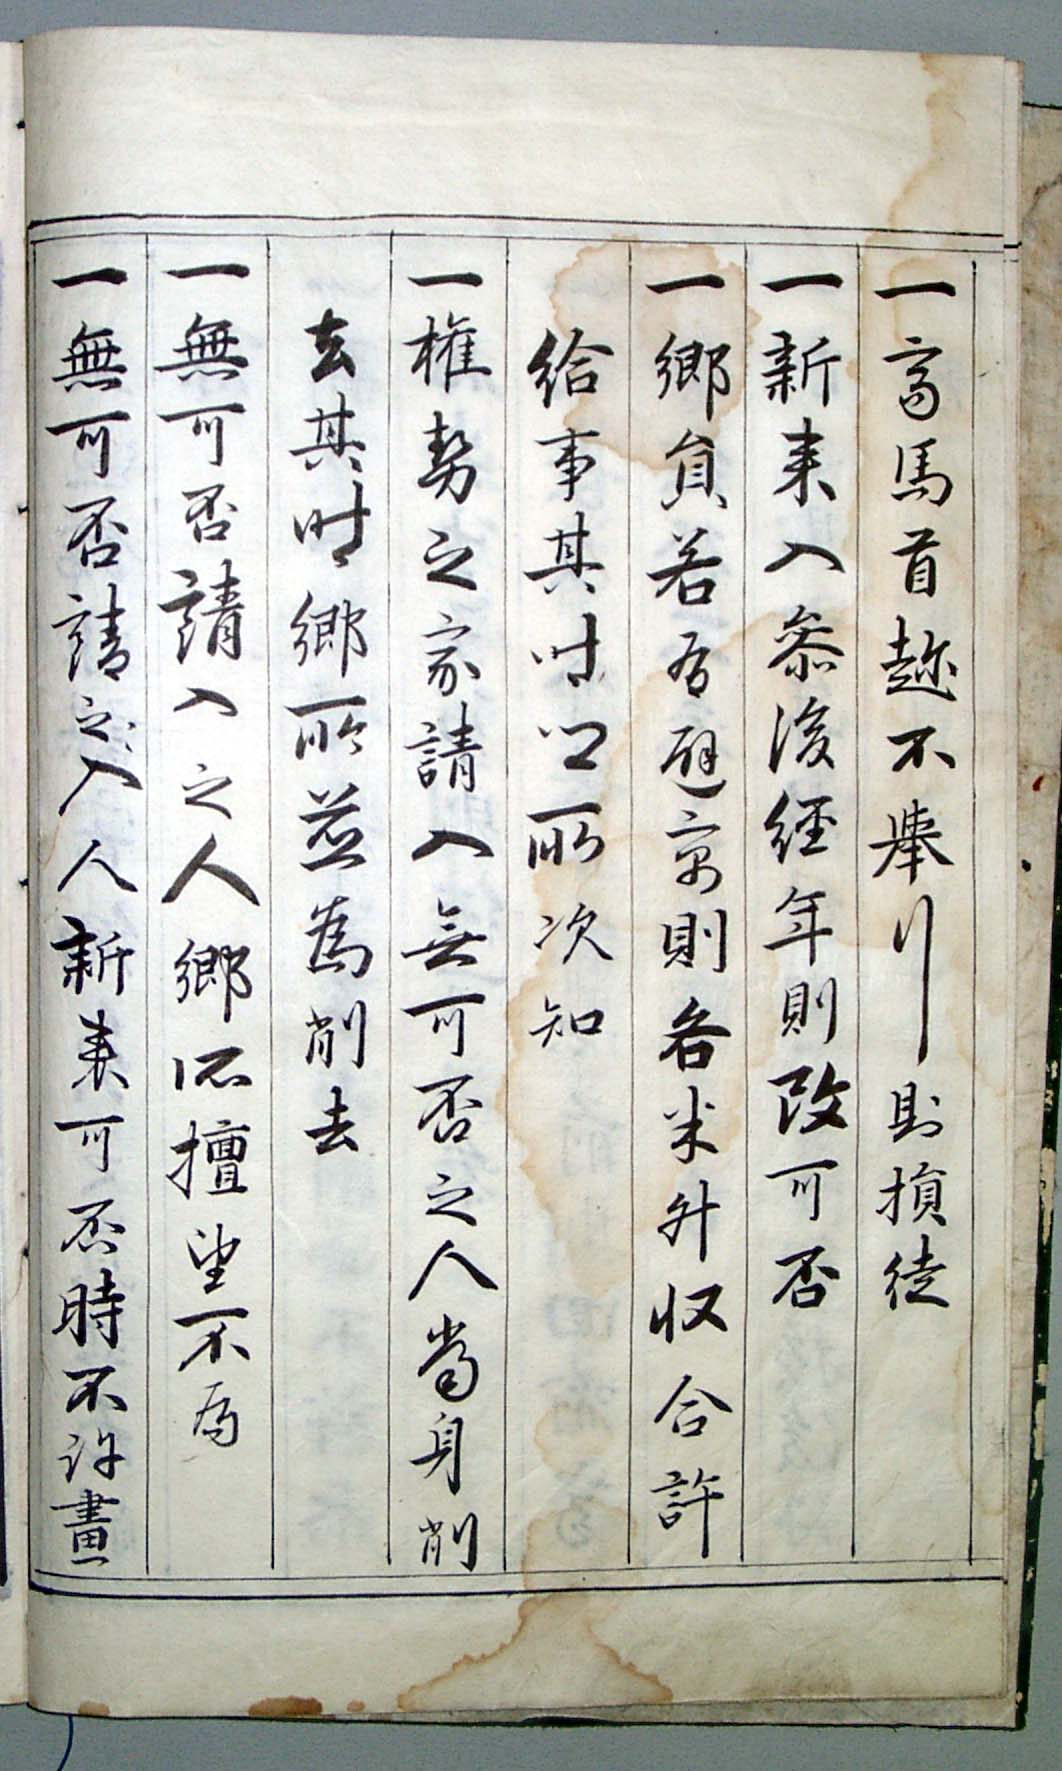 一高馬首趂不擧行則損徒
一新来入叅後經年則改可否
一鄉員若有避寓則各米升収合許
給事其时鄉所次知
一權勢之家請入無可否之人當身削
去其时鄉所並爲削去
一無可否請入之人鄉所擅望不爲
一無可否請之入人新来可否時不許畫